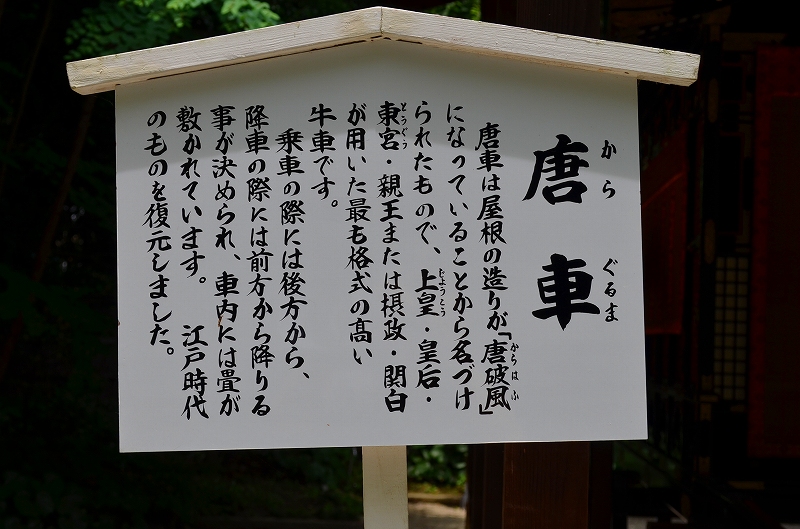 唐車
からぐるま
唐車は屋根の造りが「唐破風」
からはふ
になっていることから名づけ
られたもので、上皇・皇后・
じようこう
東宮・親王または摂政・関白
とうぐう
が用いた最も格式の高い
牛車です。
乗車の際には後方から、
降車の際には前方から降りる
事が決められ、車内には畳が
敷かれています。 江戸時代
のものを復元しました。